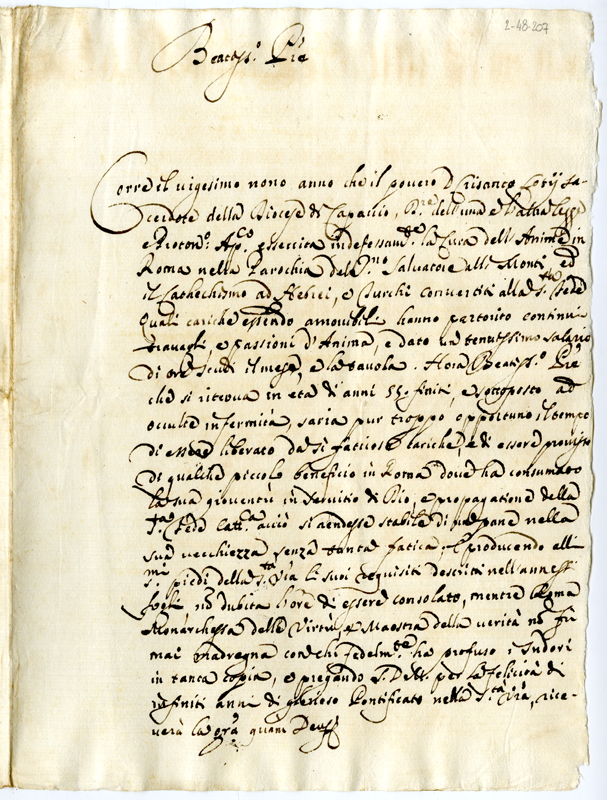 2-48-207
Beatiss.º Pre
Corre il vigesimo nono anno che il povero D. Crisanto Lotij Sa-
cerdote della Diocese di Capaccio, Dre dell'una e l'altra legge
e Proton.º Ap.co essercita indefessam.te la Cura dell'Anime in
Roma nella Parochia del S.mo Salvatore alli Monti, ed
il Cathechismo ad Hebrei, e Turchi convertiti alla S.ta Fede
Quali cariche essendo amovibili hanno partorito continui
travagli, e passioni d'Anima, e dato un tenuissimo salario
di tre scudi il mese, e la tavola. Hora Beatiss.º Pre
che si ritrova in età di anni 55 finiti, e sottoposto ad
occulte infermità, saria pur troppo opportuno il tempo
di essere liberato da sì faticose cariche, e di essere provisto
di qualche piccolo beneficio in Roma dove ha consumato
la sua gioventù in servitio di Dio, e propagatione della
S.ta Fede Catt.ca acciò si rendesse stabile di un pane nella
sua vecchiezza senza tanta fatica. E producendo alli
S.mi piedi della S.tà V'ra li suoi requisiti descritti nell'annessi
fogli nõ dubita l'Ore di essere consolato, mentre Roma
Monarchessa delle Virtù, e Maestra della verità nõ fu
mai madregna con chi fedelm.te ha profuso i sudori
in tanta copia, e pregando S. D. M. per la felicità di
infiniti anni di glorioso Pontificato nella S.tà V'ra, rice-
verà la gr'a quam Deus